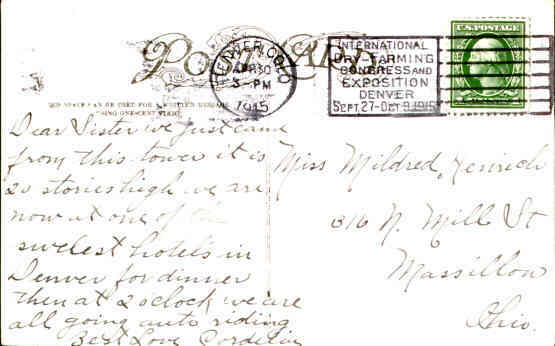 POST CARD
DENVER, COLO
APR 10
3-PM
1915
INTERNATIONAL
DRY-FARMING
CONGRESS AND
EXPOSITION
DENVER
SEPT. 27-OCT. 9, 1915
U.S. POSTAGE
Dear Sister we just came
from this tower it is
20 stories high we are
now at one of the
swelest hotels in
Denver for dinner
then at 2 oclock we are
all going auto riding
Best Love Cordelia
Miss Mildred
316 N. Mill St
Massillon
Ohio.